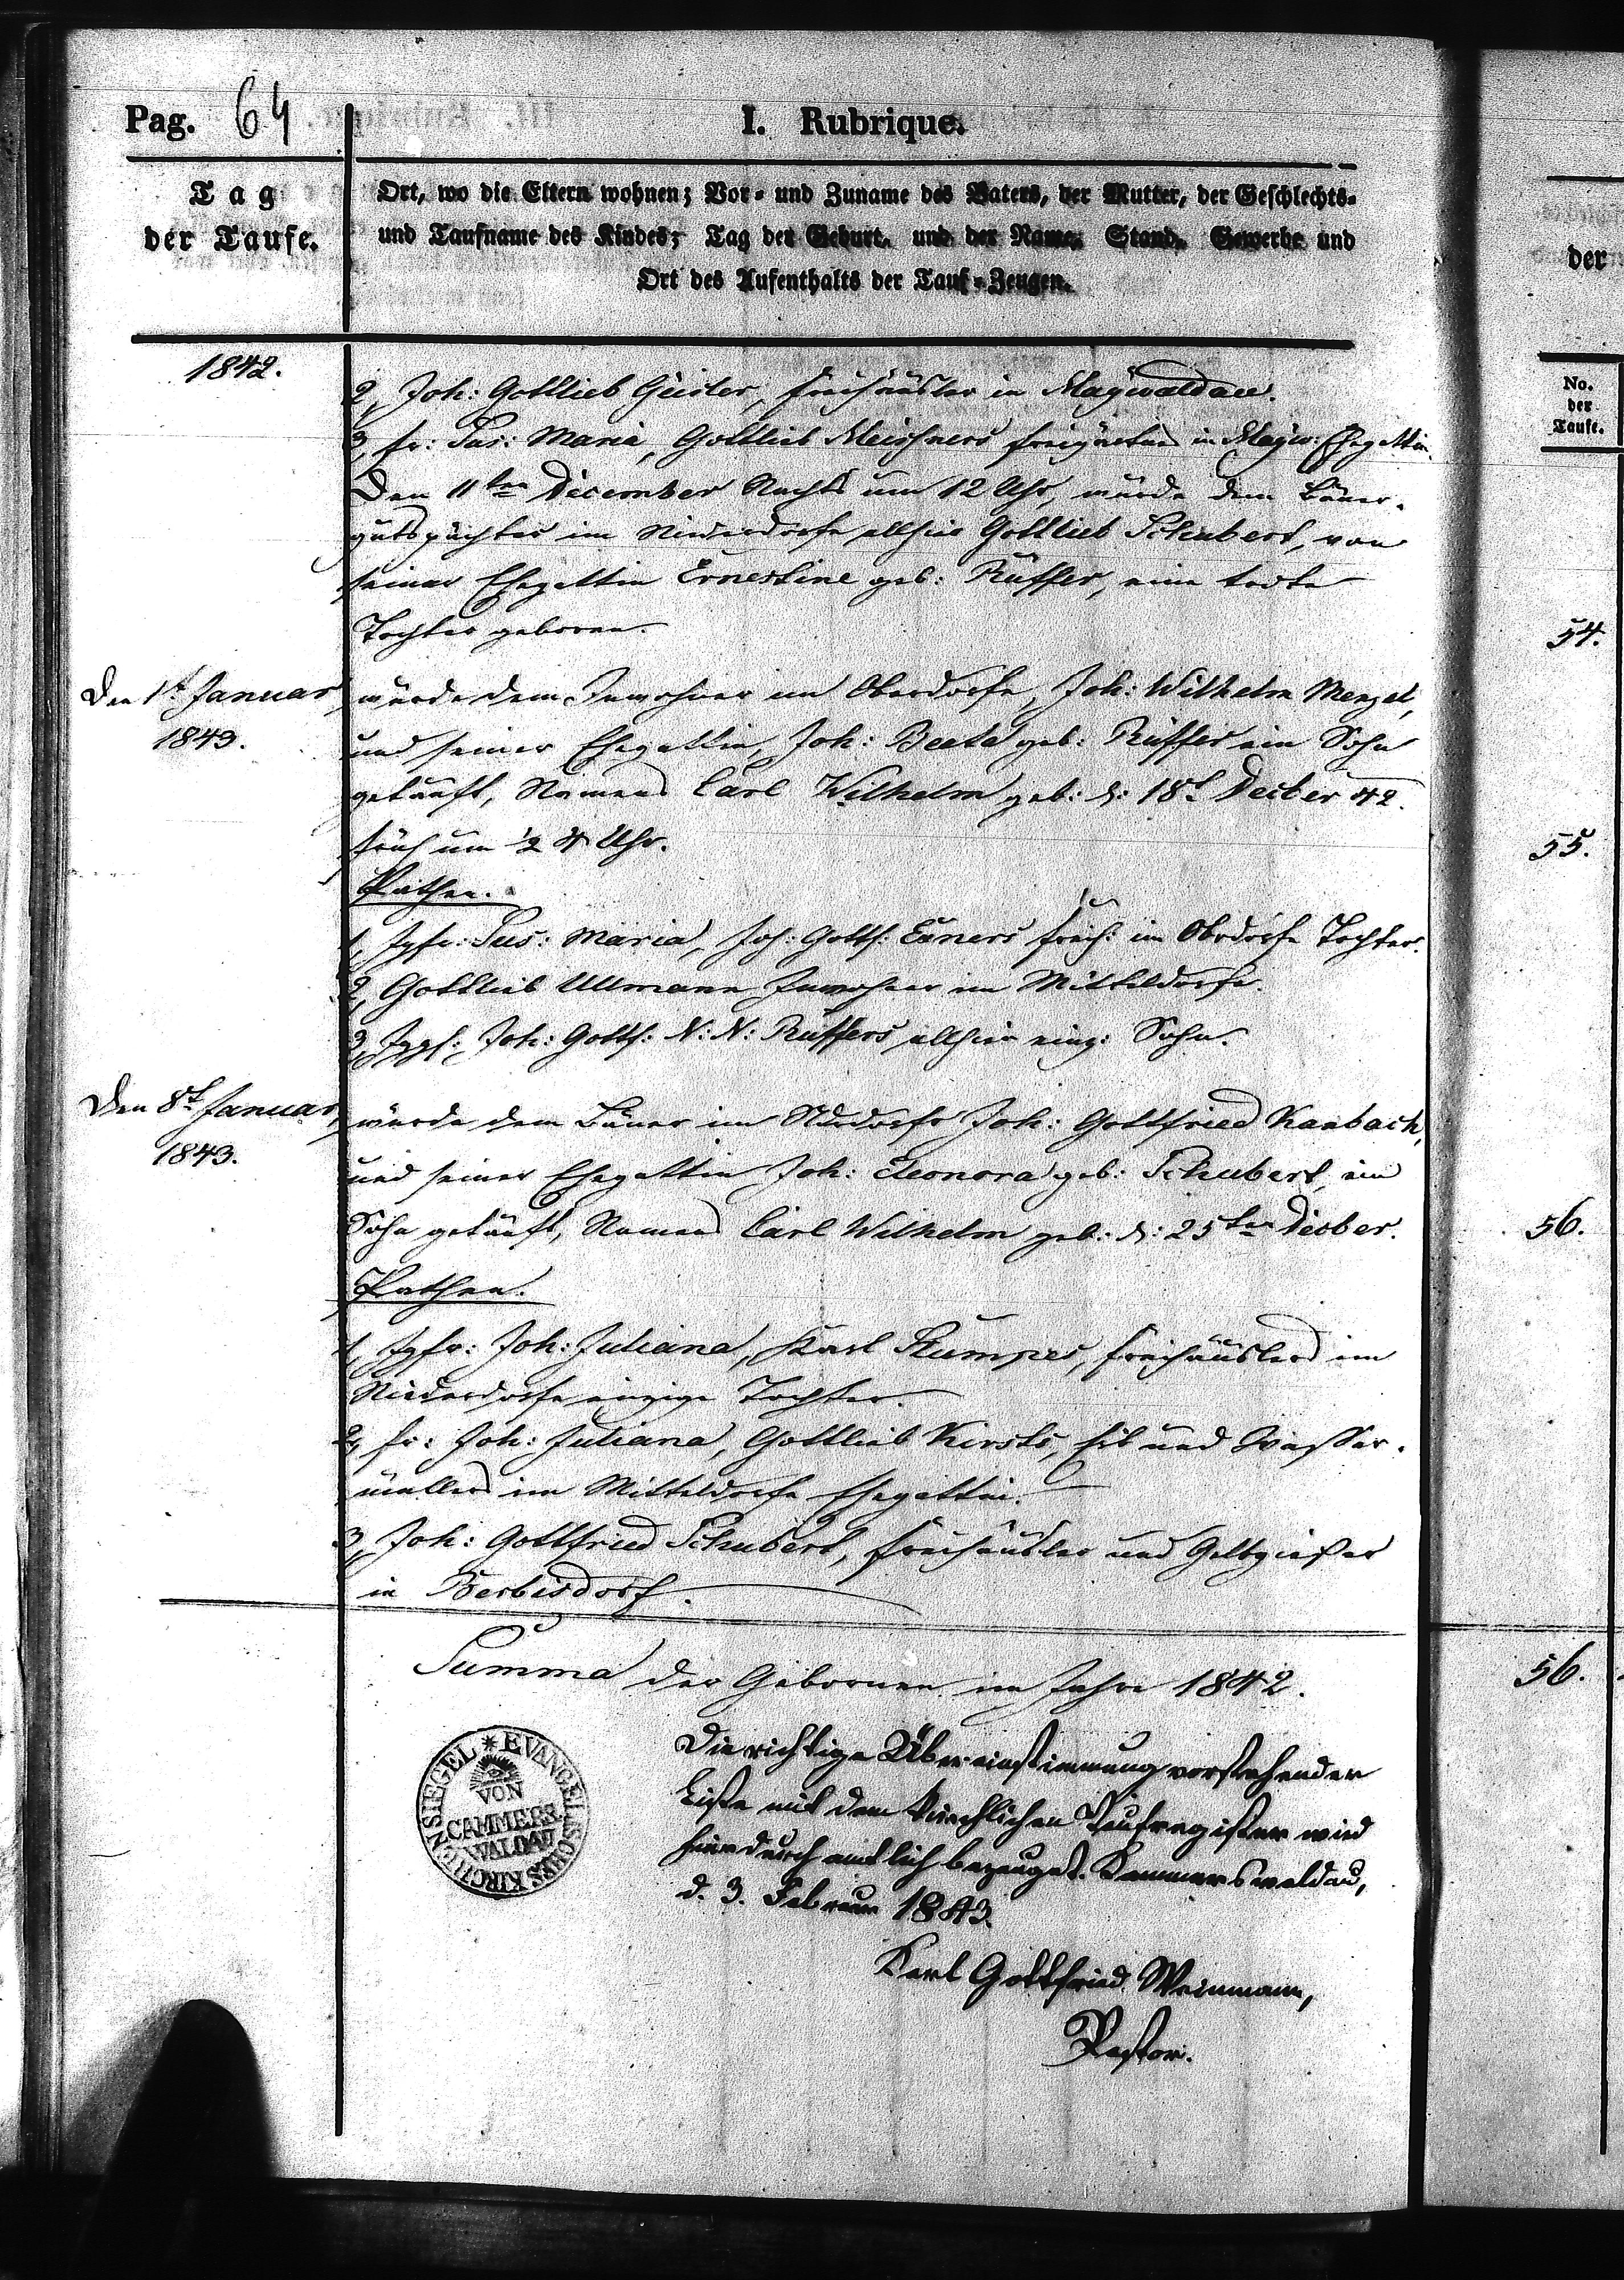 Pag. 64
I. Rubrique.
Tag
der Taufe.
Ort, wo die Eltern wohnen; Vor- und Zuname des Vaters, der Mutter, der Geschlechts-
und Taufname des Kindes; Tag der Geburt, und der Name, Stand, Gewerbe und
Ort des Aufenthalts der Tauf-Zeugen.
der
No.
der
Taufe.
1842.
2, Joh: Gottlieb Geisler, Freihäusler in Maywaldau.
3, Fr: Sus: Maria, Gottlieb Meissners Freigärtner in Mayw: Ehegattin.
Den 11ten December Nachts um 12 Uhr, wurde dem Bauer-
gutspächter im Niederdorfe allhier Gottlieb Schubert, von
seiner Ehegattin Ernestine geb: Rüffer, eine todte
Tochter geboren.
54.
Den 1t Januar
1843.
wurde dem Inwohner im Oberdorfe, Joh: Wilhelm Menzel,
und seiner Ehegattin, Joh: Beata geb: Rüffer ein Sohn
getauft, Namens Carl Wilhelm geb: d: 18t Decber 42.
früh um ½ 4 Uhr.
55.
Pathen.
1, Jgfr: Sus: Maria, Joh: Gottf: Exners Freih: im Obrdorfe Tochter.
2, Gottlieb Ullmann Inwohner im Mitteldorfe.
3, Jggs: Joh: Gottf: N: N: Rüffers allhier einz: Sohn.
Den 8t Januar
1843.
wurde dem Bauer im Ndrdorfe Joh: Gottfried Kambach,
und seiner Ehegattin Joh: Eleonora geb: Schubert, ein
Sohn getauft, Namens Carl Wilhelm geb: d: 25ten Decber.
56.
Pathen.
1, Jgfr: Joh: Juliana, Karl Stumpes, Freihäuslers im
Niederdorfe einzige Tochter.
2, Fr: Joh: Juliana, Gottlieb Kirsts, Erb und Wasser-
müllers im Mitteldorfe Ehegattin.
3, Joh: Gottfried Schubert, Freihäusler und Gelbgießer
in Berbisdorf.
Summa der Gebornen im Jahre 1842.
56.
EVANGELISCHES KIRCHENSIEGEL
VON
CAMMERS
WALDAU
Die richtige Übereinstimmung vorstehender
Liste mit dem kirchlichen Taufregister wird
hierdurch amtlich bezeuget. Kammerswaldau,
d. 3. Februar 1843.
Karl Gottfried Weinmann,
Pastor.